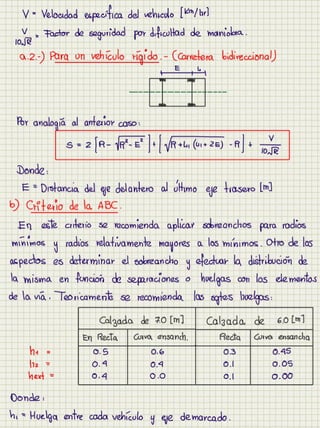 V = Velocidad específica del vehículo [km/hr]
V/10√R = Factor de seguridad por dificultad de maniobra.
a.2.-) Para un vehículo rígido.- (Carretera bidireccional)
E L₁
Por analogía al anterior caso:
S = 2 [R - √R²-E²] + [√R+L₁(L₁+2E) - R] + V/10√R
Donde:
E = Distancia del eje delantero al último eje trasero [m]
b) Criterio de la ABC.
En este criterio se recomienda aplicar sobreanchos para radios
mínimos y radios relativamente mayores a los mínimos. Otro de los
aspectos es determinar el sobreancho y efectuar la distribución de
la misma en función de separaciones o huelgas con los elementos
de la vía. Teoricamente se recomienda las sgtes huelgas:
Calzada de 7.0 [m] Calzada de 6.0 [m]
En Recta Curva ensanch. Recta Curva ensancha
h₁ = 0.5 0.6 0.3 0.45
h₂ = 0.4 0.4 0.1 0.05
hext = 0.4 0.0 0.1 0.00
Donde:
h₁ = Huelga entre cada vehículo y eje demarcado.